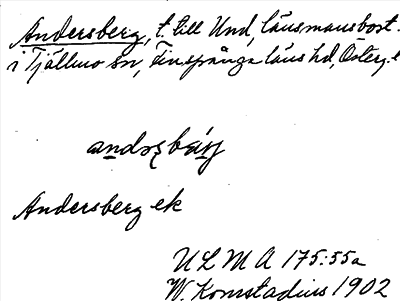 Andersberg, t. till Und, länsmansbost.
i Tjällmo sn, Finspånga läns hd, Österg. l
Andersberg ek
ULMA 175:55a
W. Komstadius 1902